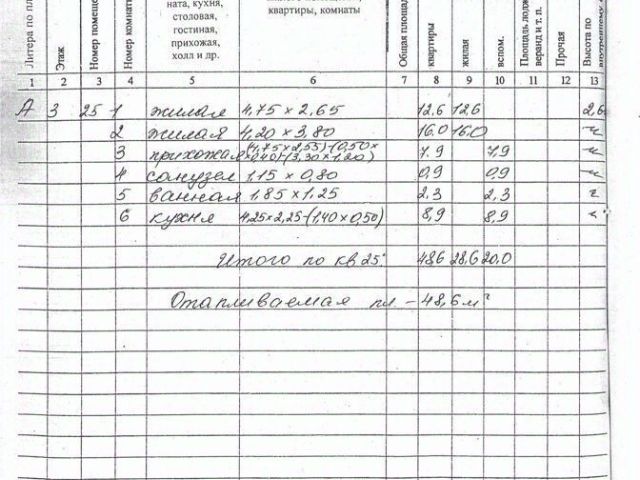 Литера по пл
Этаж
Номер помеще
Номер комнаты
ната, кухня,
столовая,
гостиная,
прихожая,
холл и др.
квартиры, комнаты
Общая площадь
квартиры
жилая
вспом.
Площадь лодж
веранд и т. п.
Прочая
Высота по
внутреннему
1 2 3 4 5 6 7 8 9 10 11 12 13
А 3 25 1 жилая 4,75 × 2,65 12,6 12,6 2,6
2 жилая 4,20 × 3,80 16,0 16,0 -"-
3 прихожая 7,9 7,9 -"-
4 санузел 1,15 × 0,80 0,9 0,9 -"-
5 ванная 1,85 × 1,25 2,3 2,3
6 кухня 4,25×2,25-(1,40×0,50) 8,9 8,9
Итого по кв 25: 48,6 28,6 20,0
Отапливаемая пл - 48,6 м²